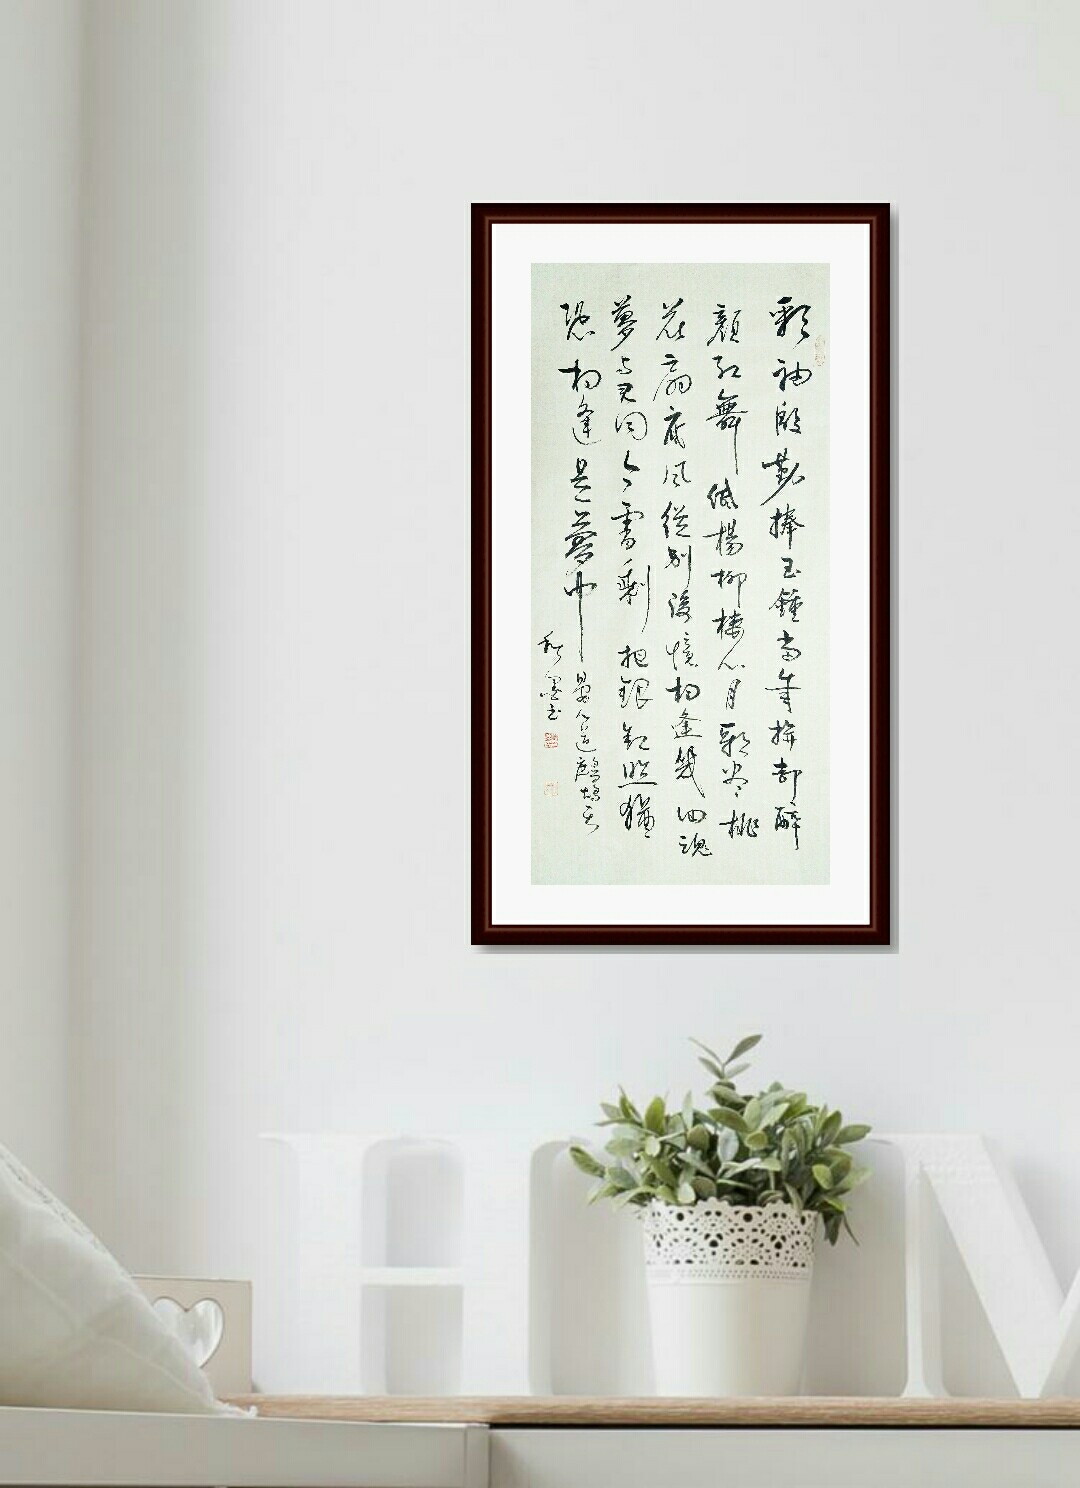 彩袖殷勤捧玉鍾当年拚却醉
顏紅舞低楊柳楼心月歌尽桃
花扇底風從别後憶相逢幾回魂
夢与君同今宵剩把銀釭照猶
恐相逢是夢中
晏几道鷓鴣天
HOM